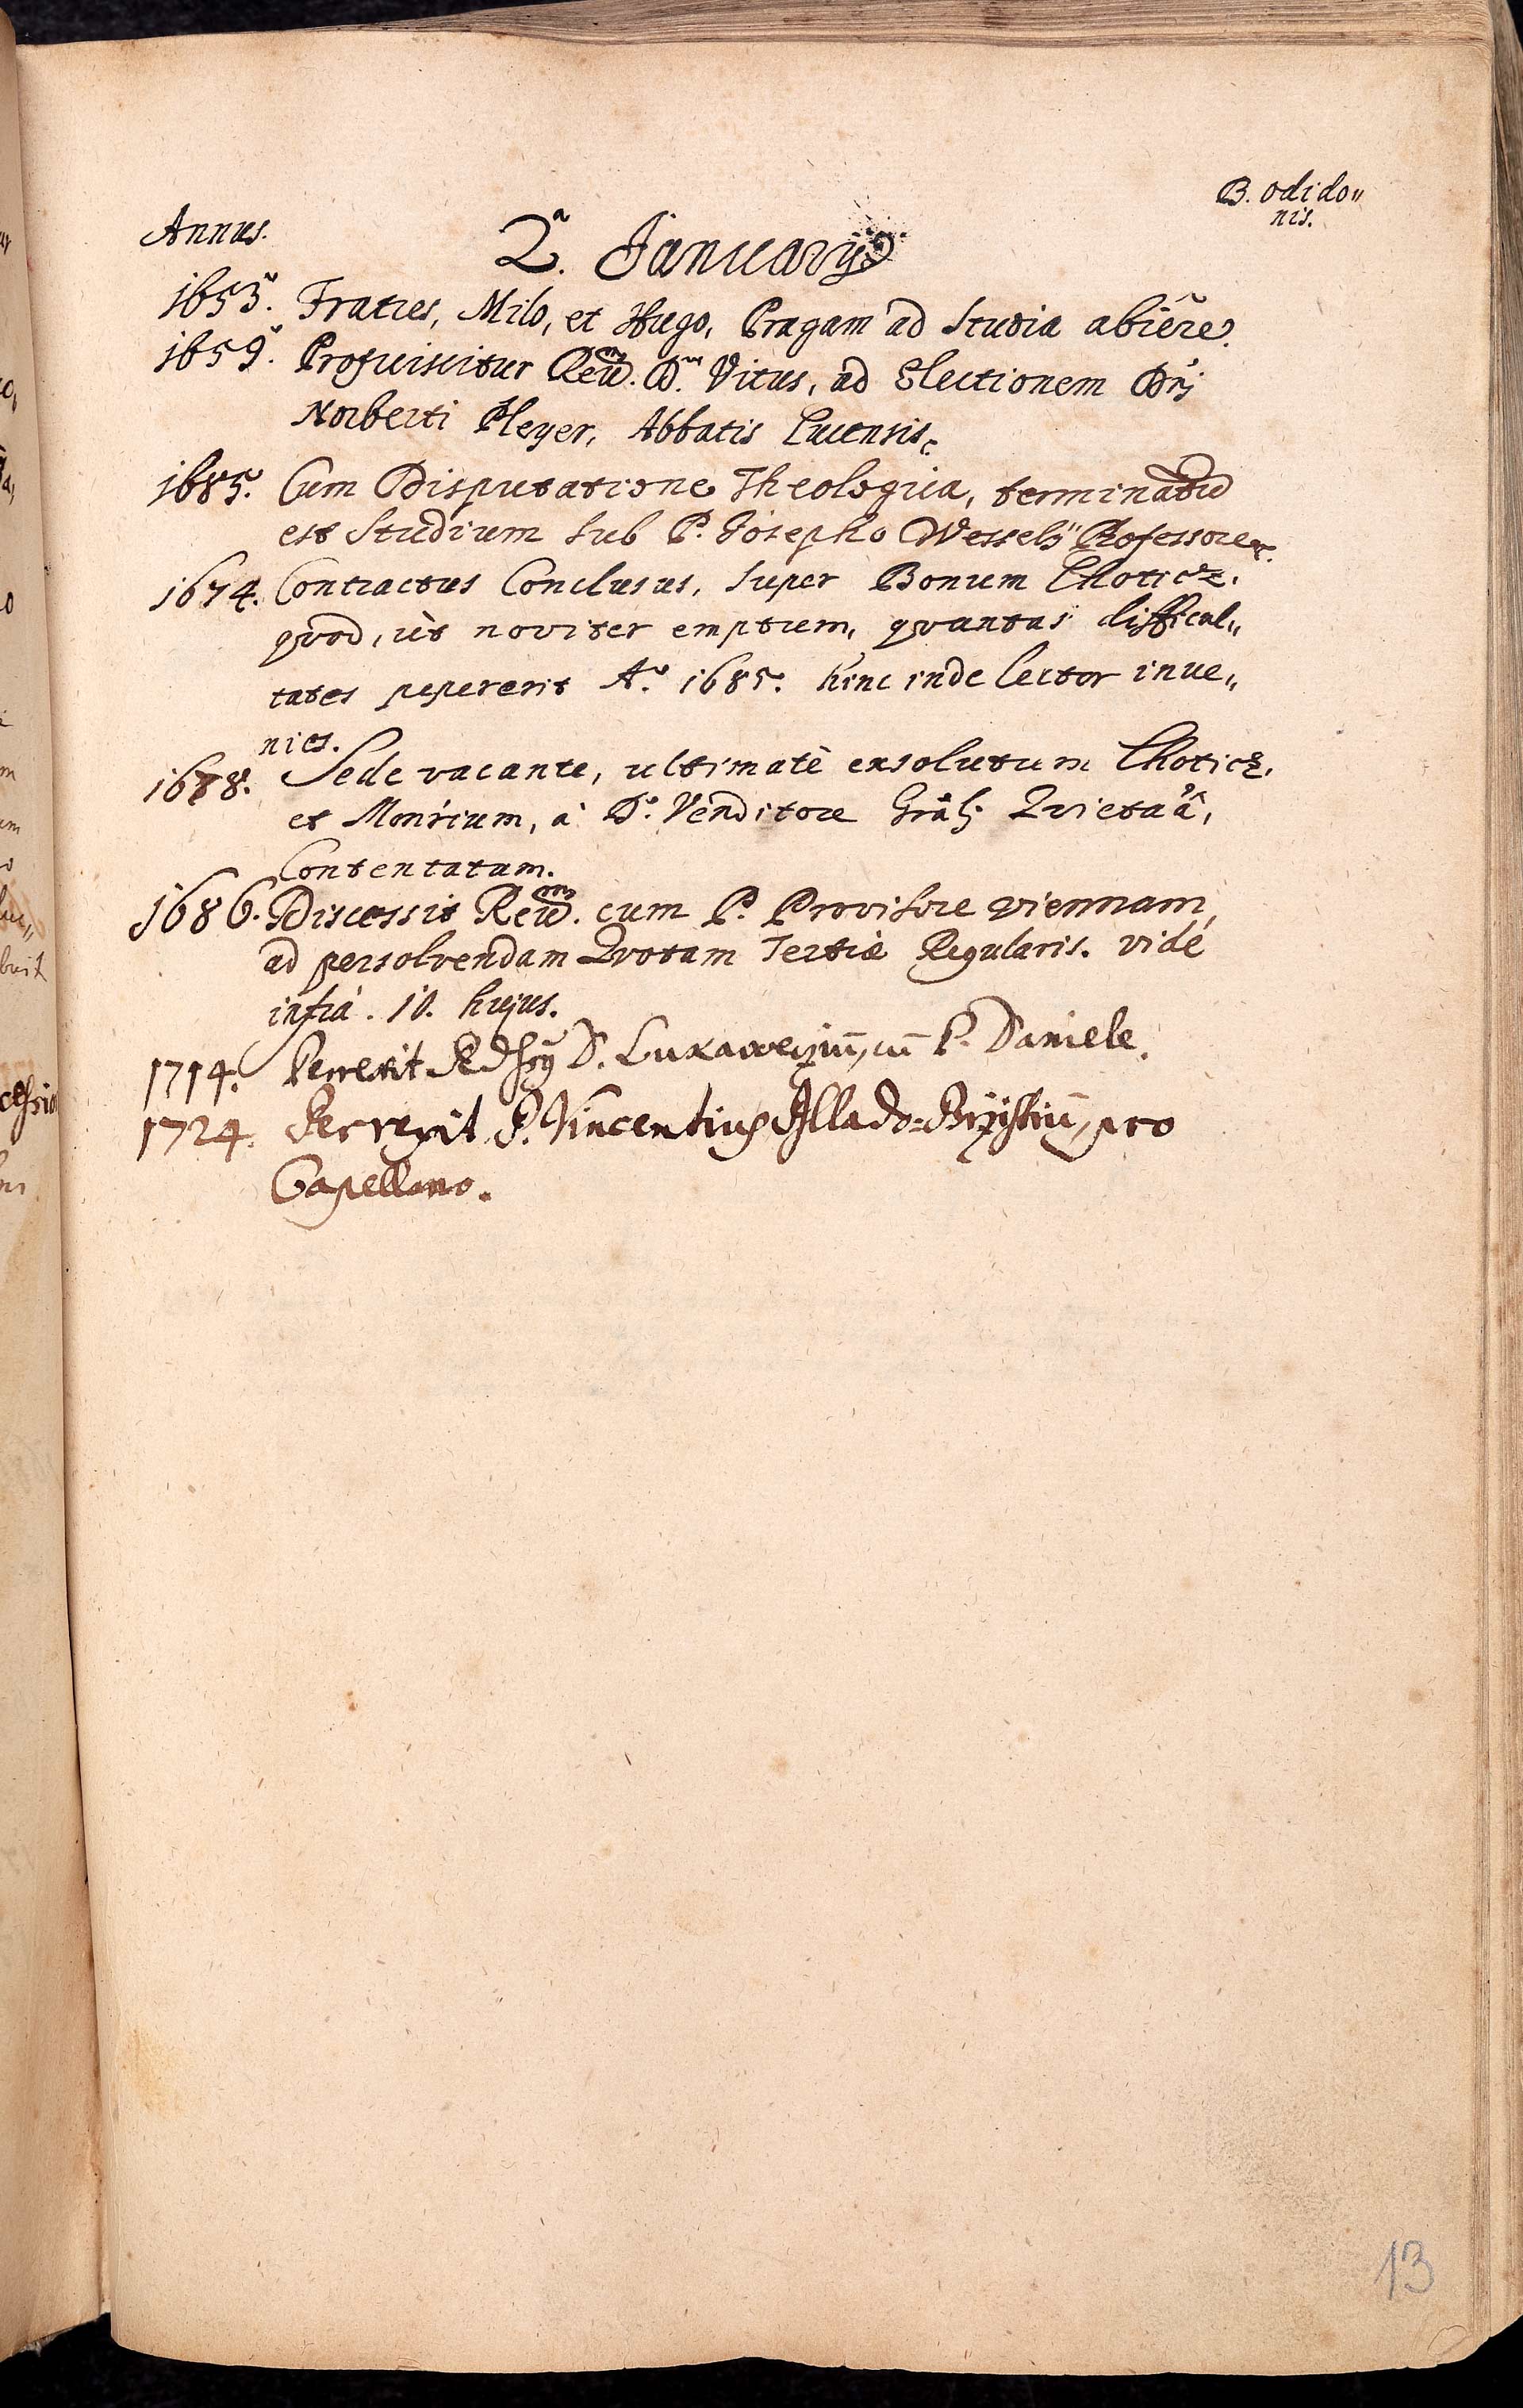 B. Odido„
nis.
Annus.
2.ª Januarÿ
1653. Fratres, Milo, et Hugo, Pragam ad Studia abiêre.
1659. Proficiscitur Reũ. D. Vitus, ad Electionem Dñi
Norberti Pleyer, Abbatis Lucensis.
1685. Cum Disputatione Theologica, terminatũ
est Studium sub P. Josepho Wesselÿ Professore
1674. Contractus Conclusus, super Bonum Lhoticz.
quod, ut noviter emptum, quantas difficul„
tates pepererit A.º 1685. hinc inde lector inve„
nies.
1678. Sede vacante, ultimatè exsolutum Lhoticz.
et Monrium, à D.º Venditore Quietatã,
Contentatam.
1686. Discessit Reũ. cum P. Provisore viennam,
ad persolvendam Quotam Tertiæ Regularis. vidé
infrà. 10. hujus.
1714. Perrexit D. Lukawecium, cũ P. Daniele.
1724. Perrexit P. Vincentius Mlado=Brzistiũ, pro
Capellano.
13